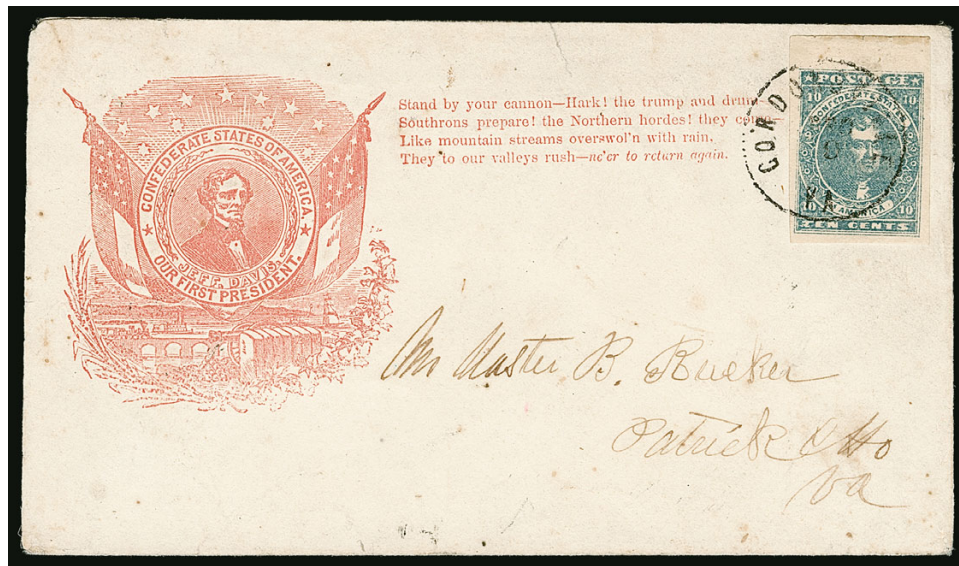 CONFEDERATE STATES OF AMERICA.
JEFF. DAVIS,
OUR FIRST PRESIDENT.
Stand by your cannon—Hark! the trump and drum
Southrons prepare! the Northern hordes! they come
Like mountain streams overswol'n with rain,
They to our valleys rush—ne'er to return again.
POSTAGE
10 10
CONFEDERATE STATES
OF AMERICA
10 10
TEN CENTS
GORDO
VA
Mr Master B. Rucker
Patrick CHo
Va